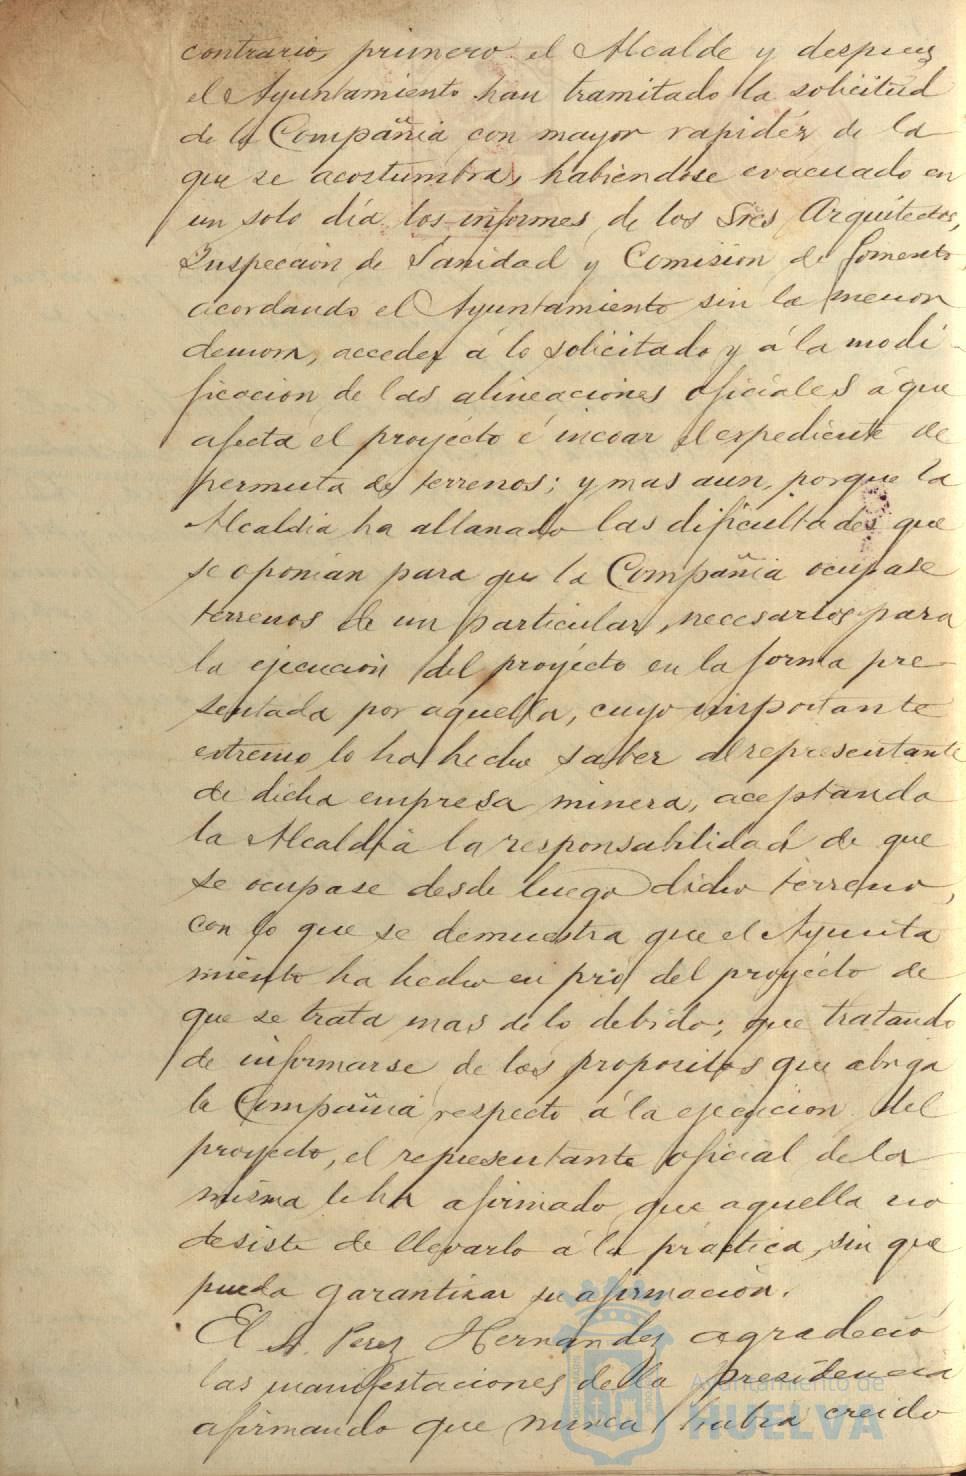 contrario, primero el Alcalde y despues
el Ayuntamiento han tramitado la solicitud
de la Compañia con mayor rapidéz de la
que se acostumbra, habiendose evacuado en
un solo día los informes de los Sres Arquitectos,
Inspección de Sanidad y Comisión de fomento,
acordando el Ayuntamiento sin la menor
demora, acceder á lo solicitado y á la modi-
ficacion de las alineaciones oficiales á que
afecta el proyecto é incoar el expediente de
permuta de terrenos; y mas aun, porque la
Alcaldia ha allanado las dificultades que
se oponian para que la Compañia ocupase
terrenos de un particular, necesarios para
la ejecución del proyecto en la forma pre-
sentada por aquella, cuyo importante
extremo lo ha hecho saber al representante
de dicha empresa minera, aceptando
la Alcaldía la responsabilidad de que
se ocupase desde luego dicho terreno,
con lo que se demuestra que el Ayunta
miento ha hecho en pró del proyecto de
que se trata mas de lo debido; que tratando
de informarse de los propositos que abriga
la Compañia respecto á la ejecucion del
proyecto, el representante oficial de la
misma le ha afirmado que aquella no
desiste de llevarlo á la práctica, sin que
pueda garantizar su afirmación.
El Sr. Perez Hernández agradeció
las manifestaciones de la presidencia
afirmando que nunca habia creido
Ayuntamiento de
HUELVA